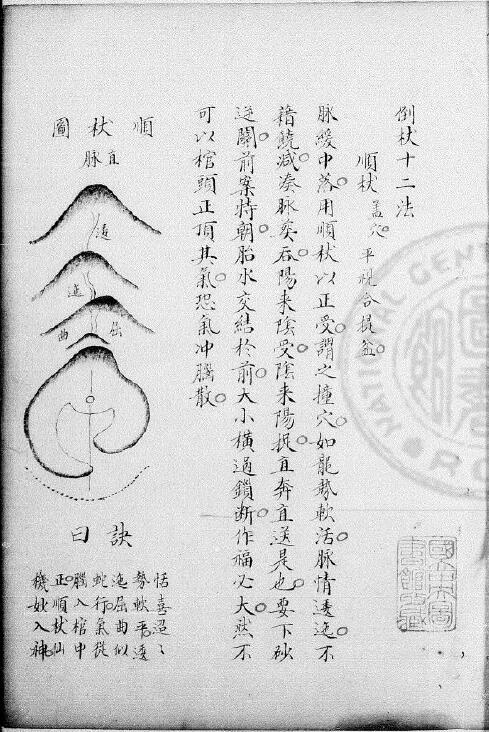 倒杖十二法
順杖 蓋穴。平視合提盆。
脉緩中落。用順杖以正受。謂之撞穴。如龍勢軟活。脉情逶迤。不
藉饒减。湊脉葬。吞陽来陰受。陰来陽提。直奔直送是也。要下砂
逆關。前案特朝。胎水交結於前。大小橫過鎖断。作福必大。然不
可以棺頭正頂其氣。恐氣冲腦散。
順杖圖
直脉
逶
迤
屈曲
訣曰
恬喜迢〻
勢軟平。逶
迤屈曲似
蛇行。氣從
腦入棺中
正。順杖仙
機妙入神。
NATIONAL CENT
RO